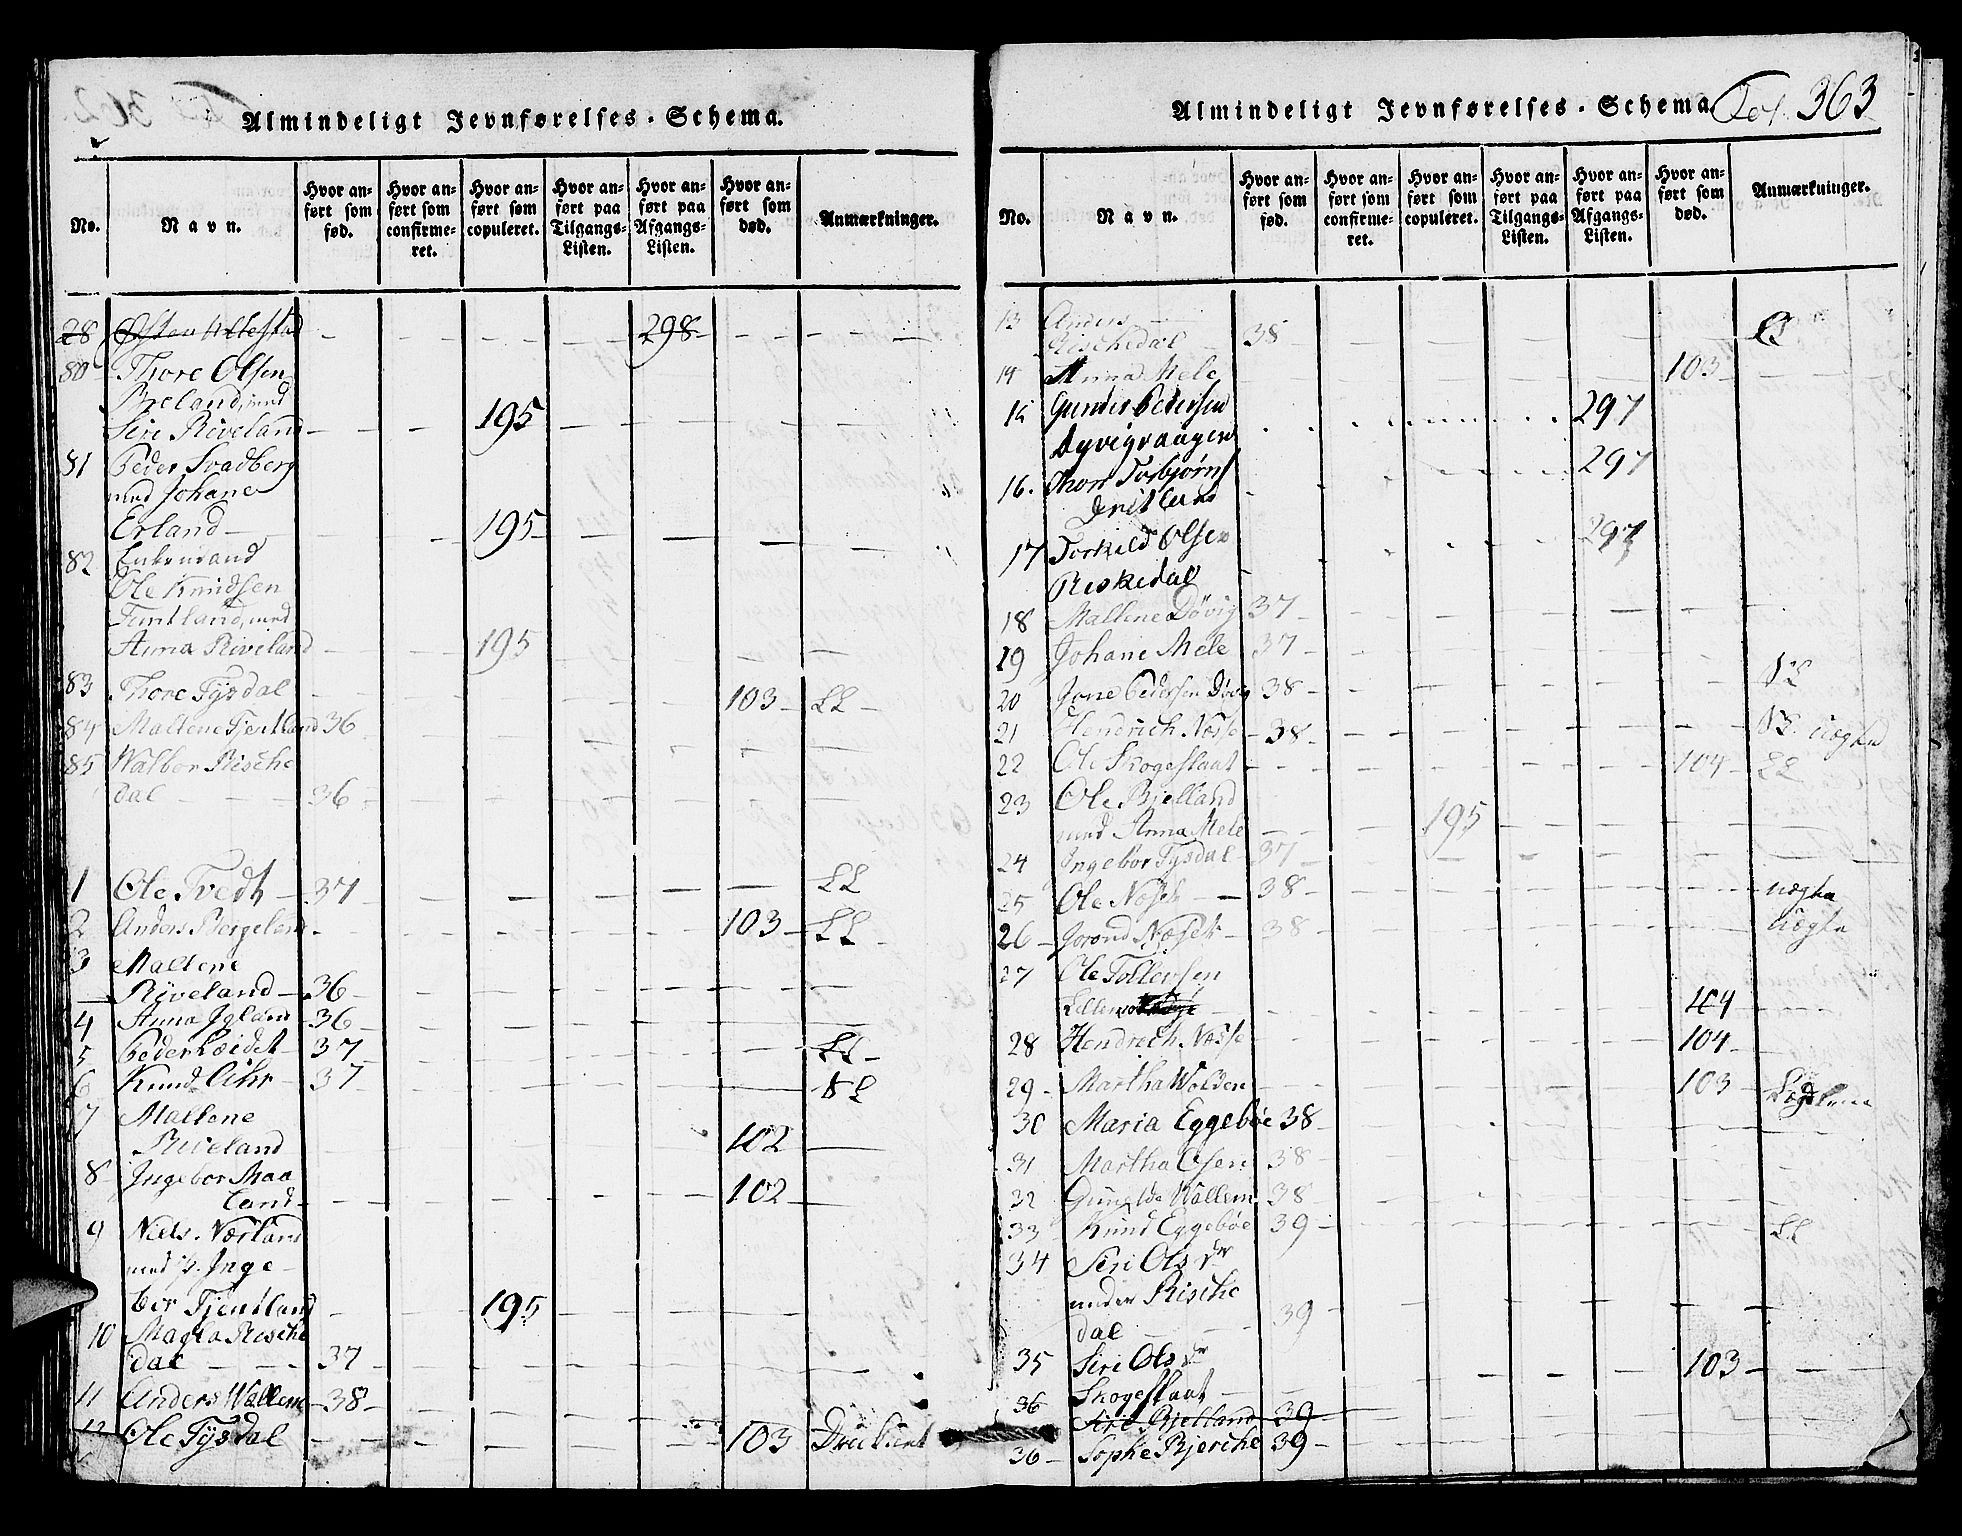 Almindeligt Jevnførelses-Schema.
No.
Navn.
Hvor anført som fød.
Hvor anført som confirmeret.
Hvor anført som copuleret.
Hvor anført paa Tilgangs-Listen.
Hvor anført paa Afgangs-Listen.
Hvor anført som død.
Anmærkninger.
28 298
80 Thore Olsen
Breland, med
Siri Riveland 195
81 Peder Svadberg
med Johane
Erland 195
82 Enkemand
Ole Knudsen
Tentland, med
Anna Riveland 195
83 Thore Tysdal 103 LL
84 Mallene Tjentland 36
85 Walbor Rische
dal 36
1 Ole Tvedt 37 LL
2 Anders Bergeland 103 LL
3 Mallene
Riveland 36
4 Anna Igland 36
5 Peder Leidet 37 LL
6 Knud 37 NL
7 Mallene
Riveland 102
8 Ingebor Maa
land 102
9 Niels Nærland
med p. Inge
bor Tjentland 195
10 Magla Rische
dal 37
11 Anders Wallem 38
12 Ole Tysdal 103
Almindeligt Jevnførelses-Schema
Fol. 363
No.
Navn.
Hvor anført som fød.
Hvor anført som confirmeret.
Hvor anført som copuleret.
Hvor anført paa Tilgangs-Listen.
Hvor anført paa Afgangs-Listen.
Hvor anført som død.
Anmærkninger.
13 Anders
Rischedal 38
14 Anna Mele 103
15 Gunder Pedersen 297
Dyvigvaagen
16. Thore Torbjørns 297
17 Torkild Olsen 297
Riskedal
18 Mallene Døvig 37
19 Johane Mele 37
20 Jone Pedersen Døvig 38 NL
21 Hendrich Nosse 38 NL. Uægte
22 Ole Skogeslaat 104 LL
23 Ole Bjelland
med Anna Mele 195
24 Ingebor Tysdal 37
25 Ole 38 uægte
26 Gorond 38 Uægte
27 Ole Tollevsen
104
28 Hendrech Nosse 104
29 Martha Wolden 103
30 Maria Eggebøe 38
31 Martha Osen 38
32 Gunilde Wallem 38
33 Knud Eggebøe 39 LL
34 Siri Ols dr
under Rische
dal 39
35 Siri Ols dr 103
Skogeslaat
36 Siri Bjelland 39
36 Sophe Bjerche 39